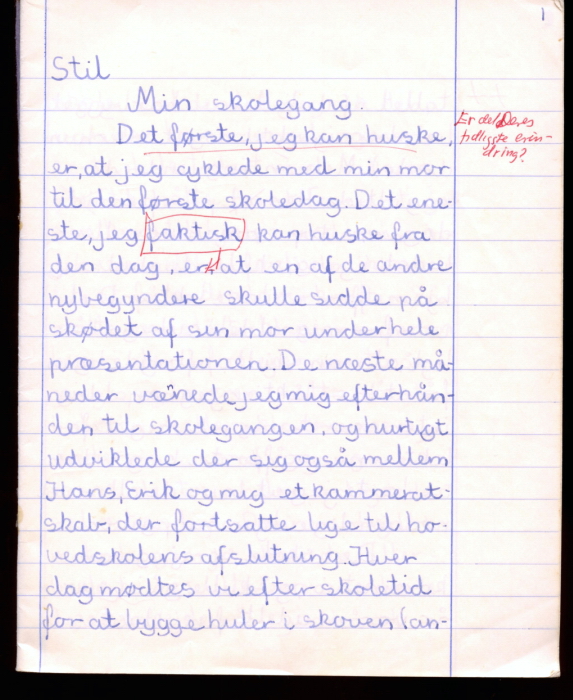 1
Stil
Min skolegang.
Det første, jeg kan huske,
Er det Deres
tidligste erin-
dring?
er, at jeg cyklede med min mor
til den første skoledag. Det ene-
ste, jeg faktisk kan huske fra
den dag, er, at en af de andre
nybegyndere skulle sidde på
skødet af sin mor under hele
præsentationen. De næste må-
neder vænnede jeg mig efterhån-
den til skolegangen, og hurtigt
udviklede der sig også mellem
Hans, Erik og mig et kammerat-
skab, der fortsatte lige til ho-
vedskolens afslutning. Hver
dag mødtes vi efter skoletid
for at bygge huler i skoven (an-